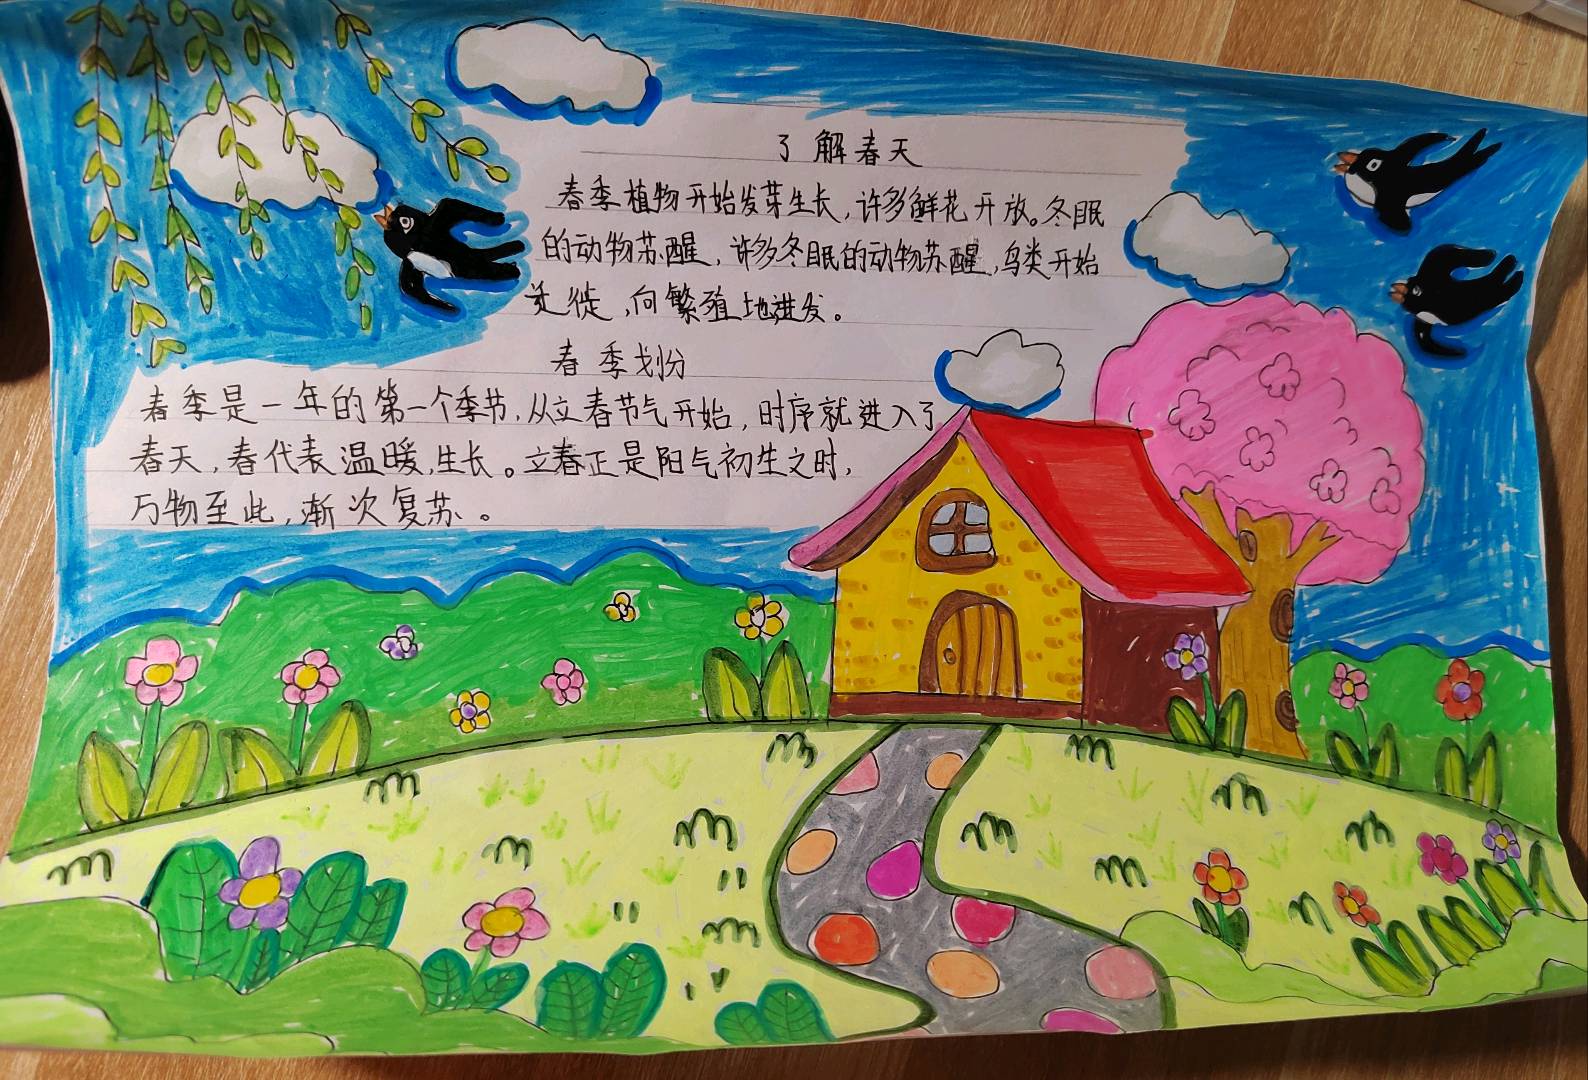 了解春天
春季植物开始发芽生长,许多鲜花开放。冬眠
的动物苏醒,许多冬眠的动物苏醒,鸟类开始
迁徙,向繁殖地进发。
春季划份
春季是一年的第一个季节,从立春节气开始,时序就进入了
春天,春代表温暖,生长。立春正是阳气初生之时,
万物至此,渐次复苏。